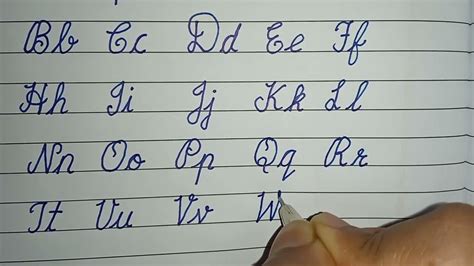 Bb Cc Dd Ee Ff
Hh Ii Jj Kk Ll
Nn Oo Pp Qq Rr
Tt Uu Vv W